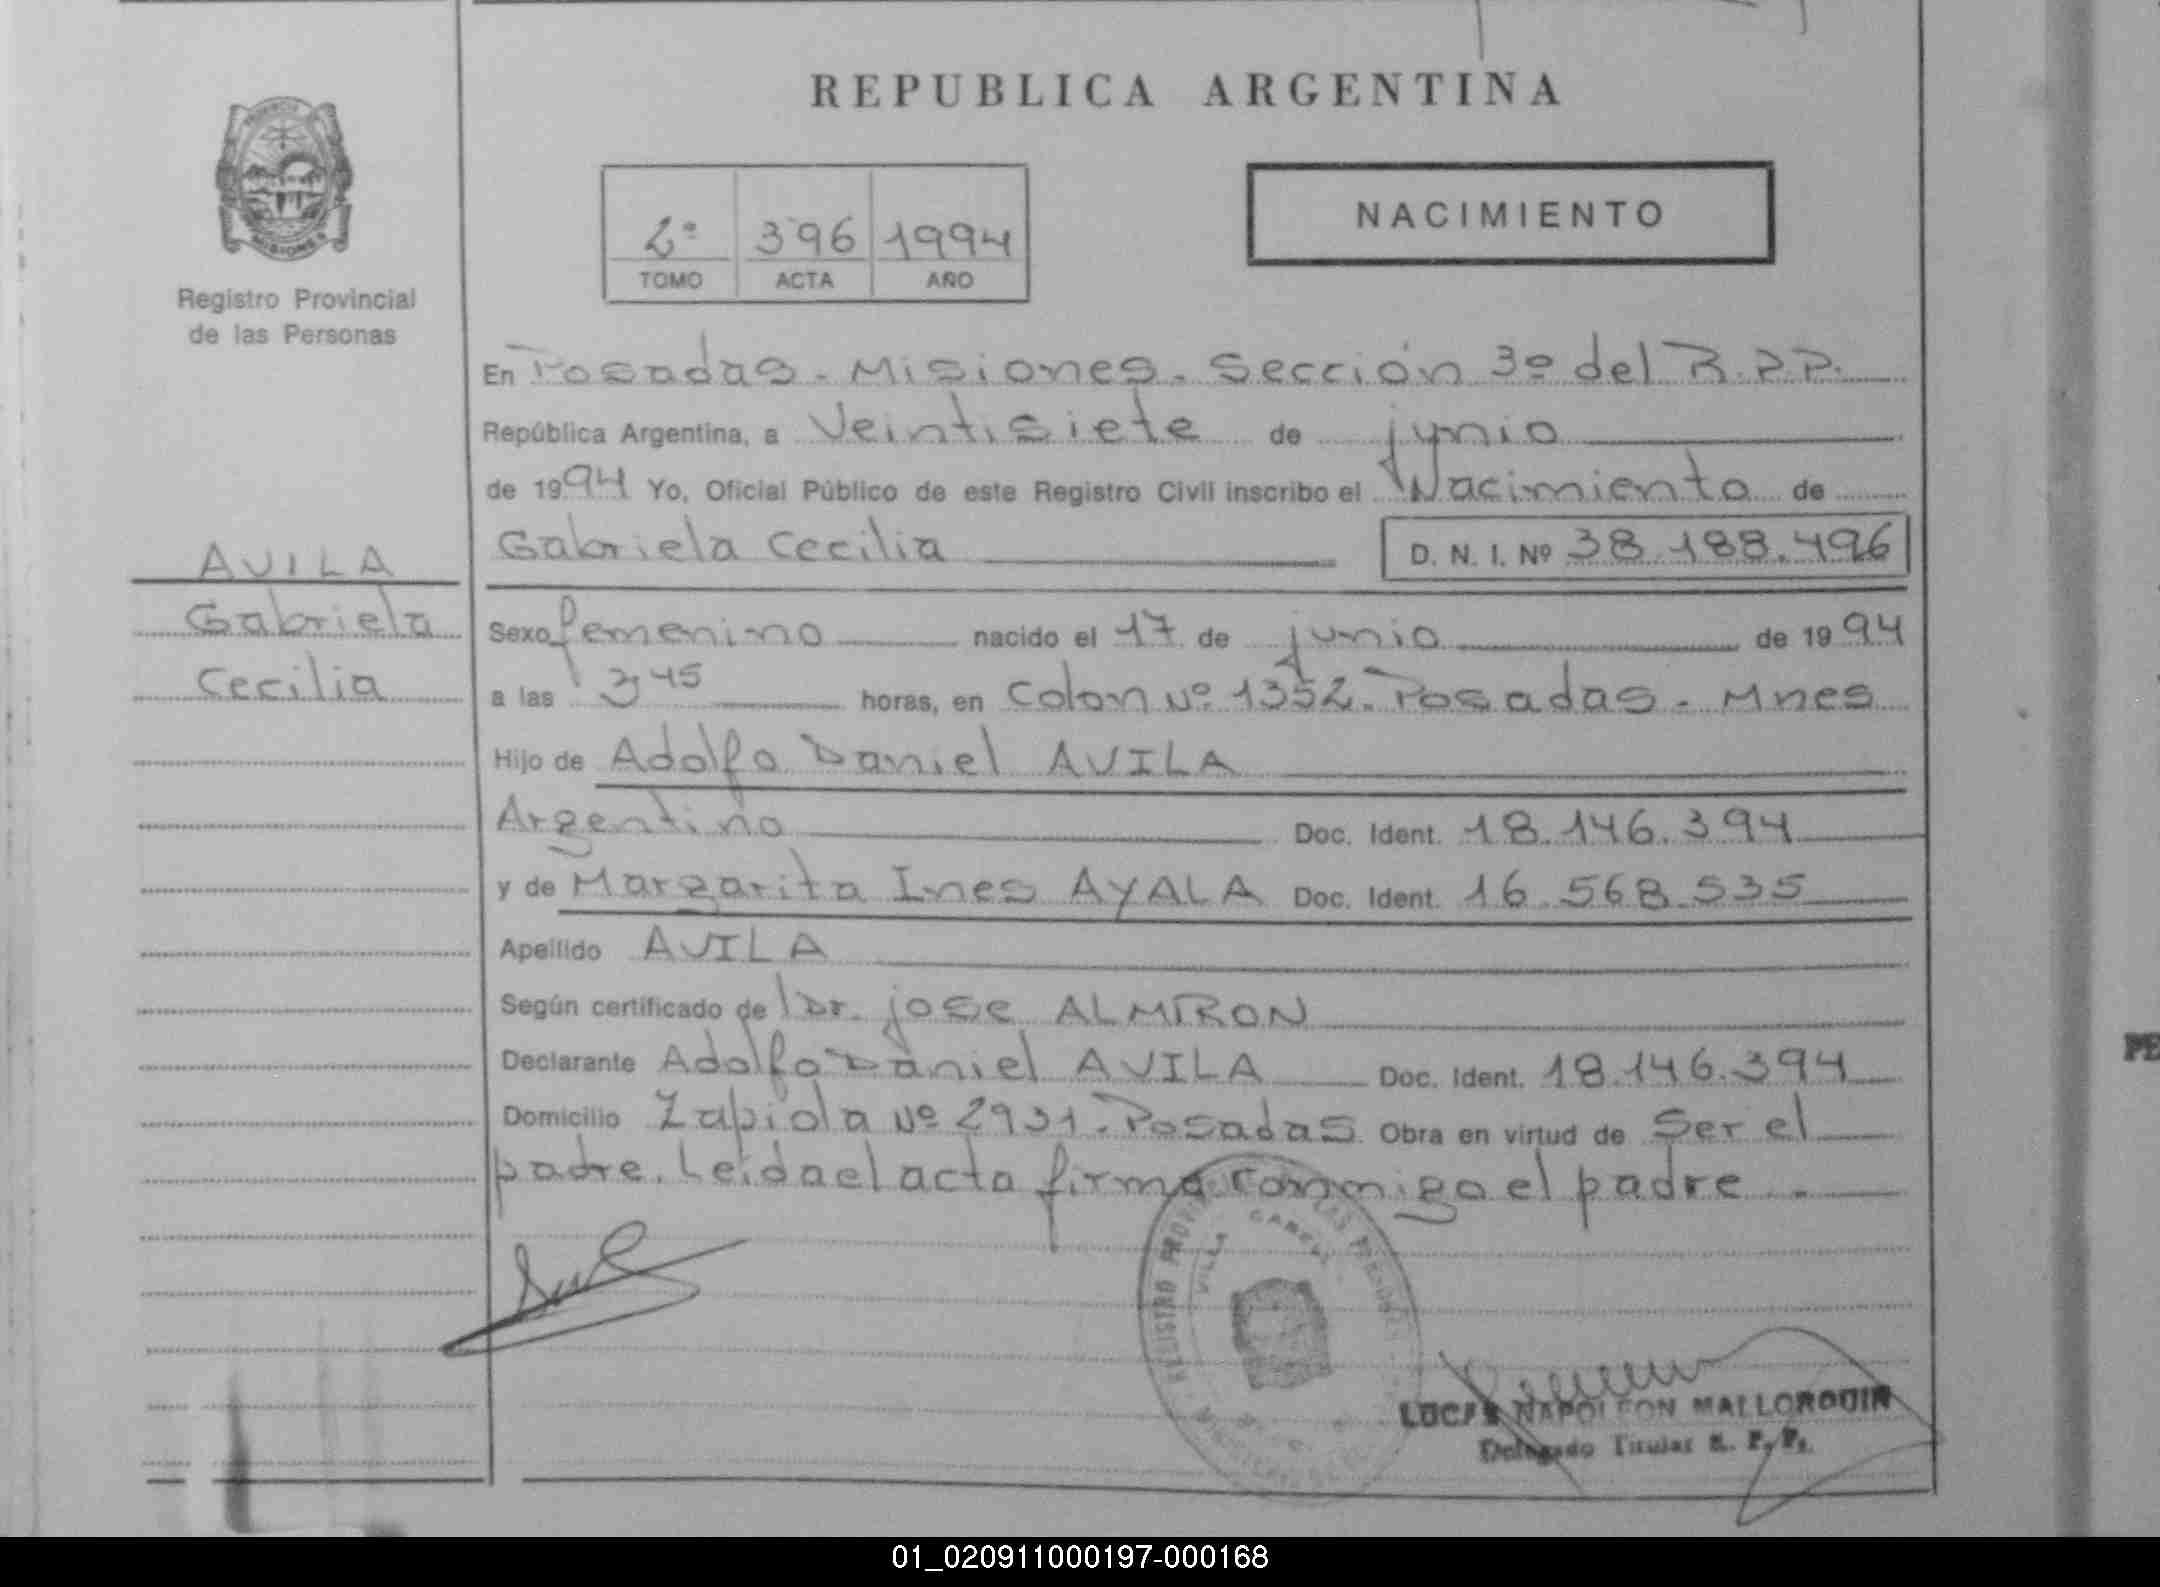 REPUBLICA ARGENTINA
NACIMIENTO
2º 396 1994
TOMO ACTA AÑO
Registro Provincial
de las Personas
En Posadas - Misiones - Sección 3º del R.P.P.
República Argentina, a Veintisiete de junio
de 1994 Yo, Oficial Público de este Registro Civil inscribo el Nacimiento de
Gabriela Cecilia D. N. I. Nº 38.188.496
AVILA
Gabriela
Cecilia
Sexo femenino nacido el 17 de junio de 1994
a las 3,45 horas, en Colon Nº 1352. Posadas - Mnes
Hijo de Adolfo Daniel AVILA
Argentino Doc. Ident. 18.146.394
y de Margarita Ines AYALA Doc. Ident. 16.568.535
Apellido AVILA
Según certificado de Dr. jose ALMIRON
Declarante Adolfo Daniel AVILA Doc. Ident. 18.146.394
Domicilio Zapiola Nº 2931. Posadas Obra en virtud de Ser el
padre. Leida el acta firma conmigo el padre.
REGISTRO
VILLA CABELLO
LUCAS NAPOLEON MALLORQUIN
Delegado Titular R. P. P.
PE
01_020911000197-000168